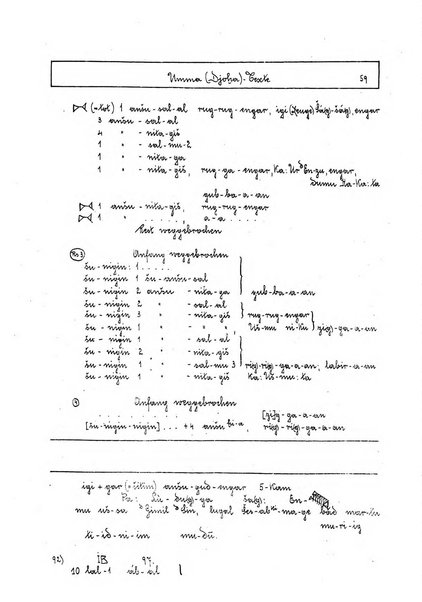 Umma (Djoha)-Texte 59
(= tot) 1 anšu-sal-al rug-rug-engar, igi (Zeuge) engar
3 anšu-sal-al
4 " - nita-giš
1 " - sal-mu-2
1 " - nita-ga
1 " - nita-giš, rug-ga-engar, Ka: En-zu, engar,
dumu Ka:ta
gub-ba-a-an
1 anšu-nita-giš, rug-rug-engar
1 " . . . . . , a-a . . . . .
Rest weggebrochen
Rs 3 Anfang weggebrochen
šu-nigin: 1 . . . . .
šu-nigin 1 šu-anšu-sal
šu-nigin 2 anšu - nita-ga gub-ba-a-an
šu-nigin 2 " - sal-al
šu-nigin 3 " - nita-giš rug-rug-engar
šu-nigin 1 " - " " Uš-mu ni-ku zig-ga-a-an
šu-nigin 1 " - sal-al
šu-nigin 2 . " - nita-giš
šu-nigin 1 . " - sal-mu 3 rig-rig-ga-a-an; labir-a-an
šu-nigin 1 " - nita-giš Ka:Uš-mu:ta
4 Anfang weggebrochen
. . . . . [zig-ga-a-an
[šu-nigin-nigin] ... +4 anšu hi-a, rig-rig-ga-a-an
igi + gar (= šitim) anšu-gud-engar 5-kam
Pa: Lù-dug-ga šag: En-
mu uš-sa Gimil Sin, lugal -ma-ge bád mar-tu
mu-ri-iz
ti-id-ni-im mu-dū.
92) IB 97.
10 lal-1 áb-ál